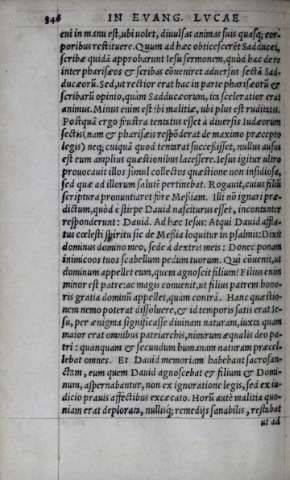 346 IN EVANG. LVCAE
cui in manu est, ubi uolet, diuulsas animas suis quasq; cor-
poribus restituere. Quum ad haec obticesceret Sadducei,
scribae quidã approbarunt Iesu sermonem, quòd hac de re
inter pharisaeos & scribas cõueniret aduersus sectã Sad-
ducaeorũ. Sed, ut rectior erat hac in parte pharisaeorũ &
scribarũ opinio, quàm Sadducaeorum, ita sceleratior erat
animus. Minus enim est ibi malitiae, ubi plus est ruditatis.
Postquã ergo frustra tentatus esset à diuersis Iudaeorum
sectis (nam & pharisaeis respõderat de maximo praecepto
legis) neq; cuiquã quod tentarat successisset, nullus ausus
est eum amplius quaestionibus lacessere. Iesus igitur ultro
prouocauit illos simul collectos quaestione non insidiosa,
sed quae ad illorum salutẽ pertinebat. Rogauit, cuius filiũ
scriptura pronuntiaret fore Messiam. Illi nõ ignari prae-
dictum, quòd è stirpe Dauid nasciturus esset, incontanter
responderunt: Dauid. Ad haec Iesus: Atqui Dauid affla-
tus coelesti spiritu sic de Messia loquitur in psalmis: Dixit
dominus domino meo, sede à dextris meis: Donec ponam
inimicos tuos scabellum pedum tuorum. Qui cõuenit, ut
dominum appellet eum, quem agnoscit filium? Filius enim
minor est patre: ac magis conuenit, ut filius patrem hono-
ris gratia dominũ appellet, quàm contrà. Hanc quaestio-
nem nemo poterat dissoluere, & id temporis satis erat Ie-
su, per aenigma significasse diuinam naturam, iuxta quam
maior erat omnibus patriarchis, nimirum aequalis deo pa-
tri: quanquam & secundum humanam naturam praecel-
lebat omnes. Et Dauid memoriam habebant sacrosan-
ctam, eum quem Dauid agnoscebat & filium & Domi-
num, aspernabantur, non ex ignoratione legis, sed ex iu-
dicio prauis affectibus excaecato. Horũ autẽ malitia quo-
niam erat deplorata, nullisq; remedijs sanabilis, restabat
ut ad